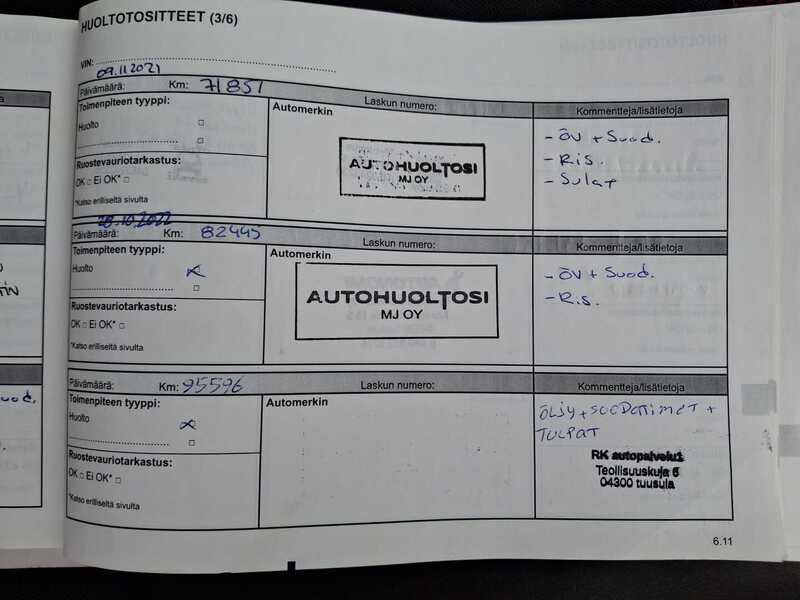 HUOLTOTOSITTEET (3/6)
VIN:
09.11.2021
Päivämäärä: Km: 71851 Laskun numero: Kommentteja/lisätietoja
Toimenpiteen tyyppi:
Huolto
Ruostevauriotarkastus:
OK Ei OK*
*Katso erilliseltä sivulta
Automerkin
AUTOHUOLTOSI
MJ OY
- ÖV + Suod.
- Ris.
- Sulat
28.10.2022
Päivämäärä: Km: 82445 Laskun numero: Kommentteja/lisätietoja
Toimenpiteen tyyppi:
Huolto
Ruostevauriotarkastus:
OK Ei OK*
*Katso erilliseltä sivulta
Automerkin
AUTOHUOLTOSI
MJ OY
- ÖV + Suod.
- Ris.
Päivämäärä: Km: 95596 Laskun numero: Kommentteja/lisätietoja
Toimenpiteen tyyppi:
Huolto
Ruostevauriotarkastus:
OK Ei OK*
*Katso erilliseltä sivulta
Automerkin
ÖLJY + SUODATIMET +
TULPAT
RK autopalvelut
Teollisuuskuja 6
04300 tuusula
6.11